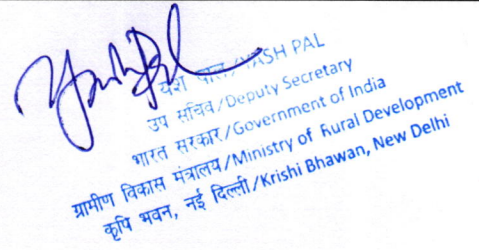 यश पाल/YASH PAL
उप सचिव/Deputy Secretary
भारत सरकार/Government of India
ग्रामीण विकास मंत्रालय/Ministry of Rural Development
कृषि भवन, नई दिल्ली/Krishi Bhawan, New Delhi